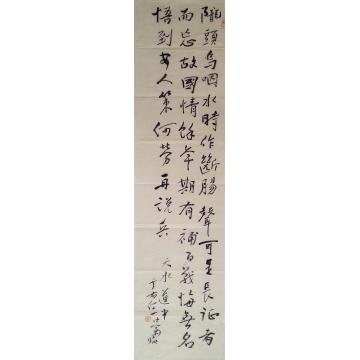 隴頭嗚咽水時作斷腸聲可是長征者
而忘故國情餘年期有補百戰悔無名
悟到安人策何勞再說兵
天水道中
于右任